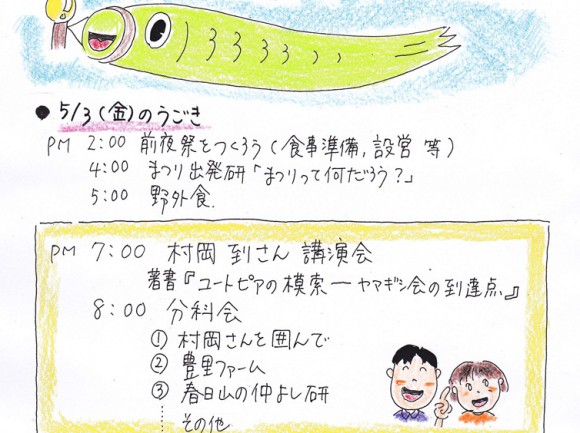 ● 5/3(金)のうごき
PM 2:00 前夜祭をつくろう(食事準備,設営 等)
4:00 まつり出発研「まつりって何だろう?」
5:00 野外食.
PM 7:00 村岡 到さん 講演会
著書『ユートピアの模索―ヤマギシ会の到達点』
8:00 分科会
① 村岡さんを囲んで
② 豊里ファーム
③ 春日山の仲よし研
その他